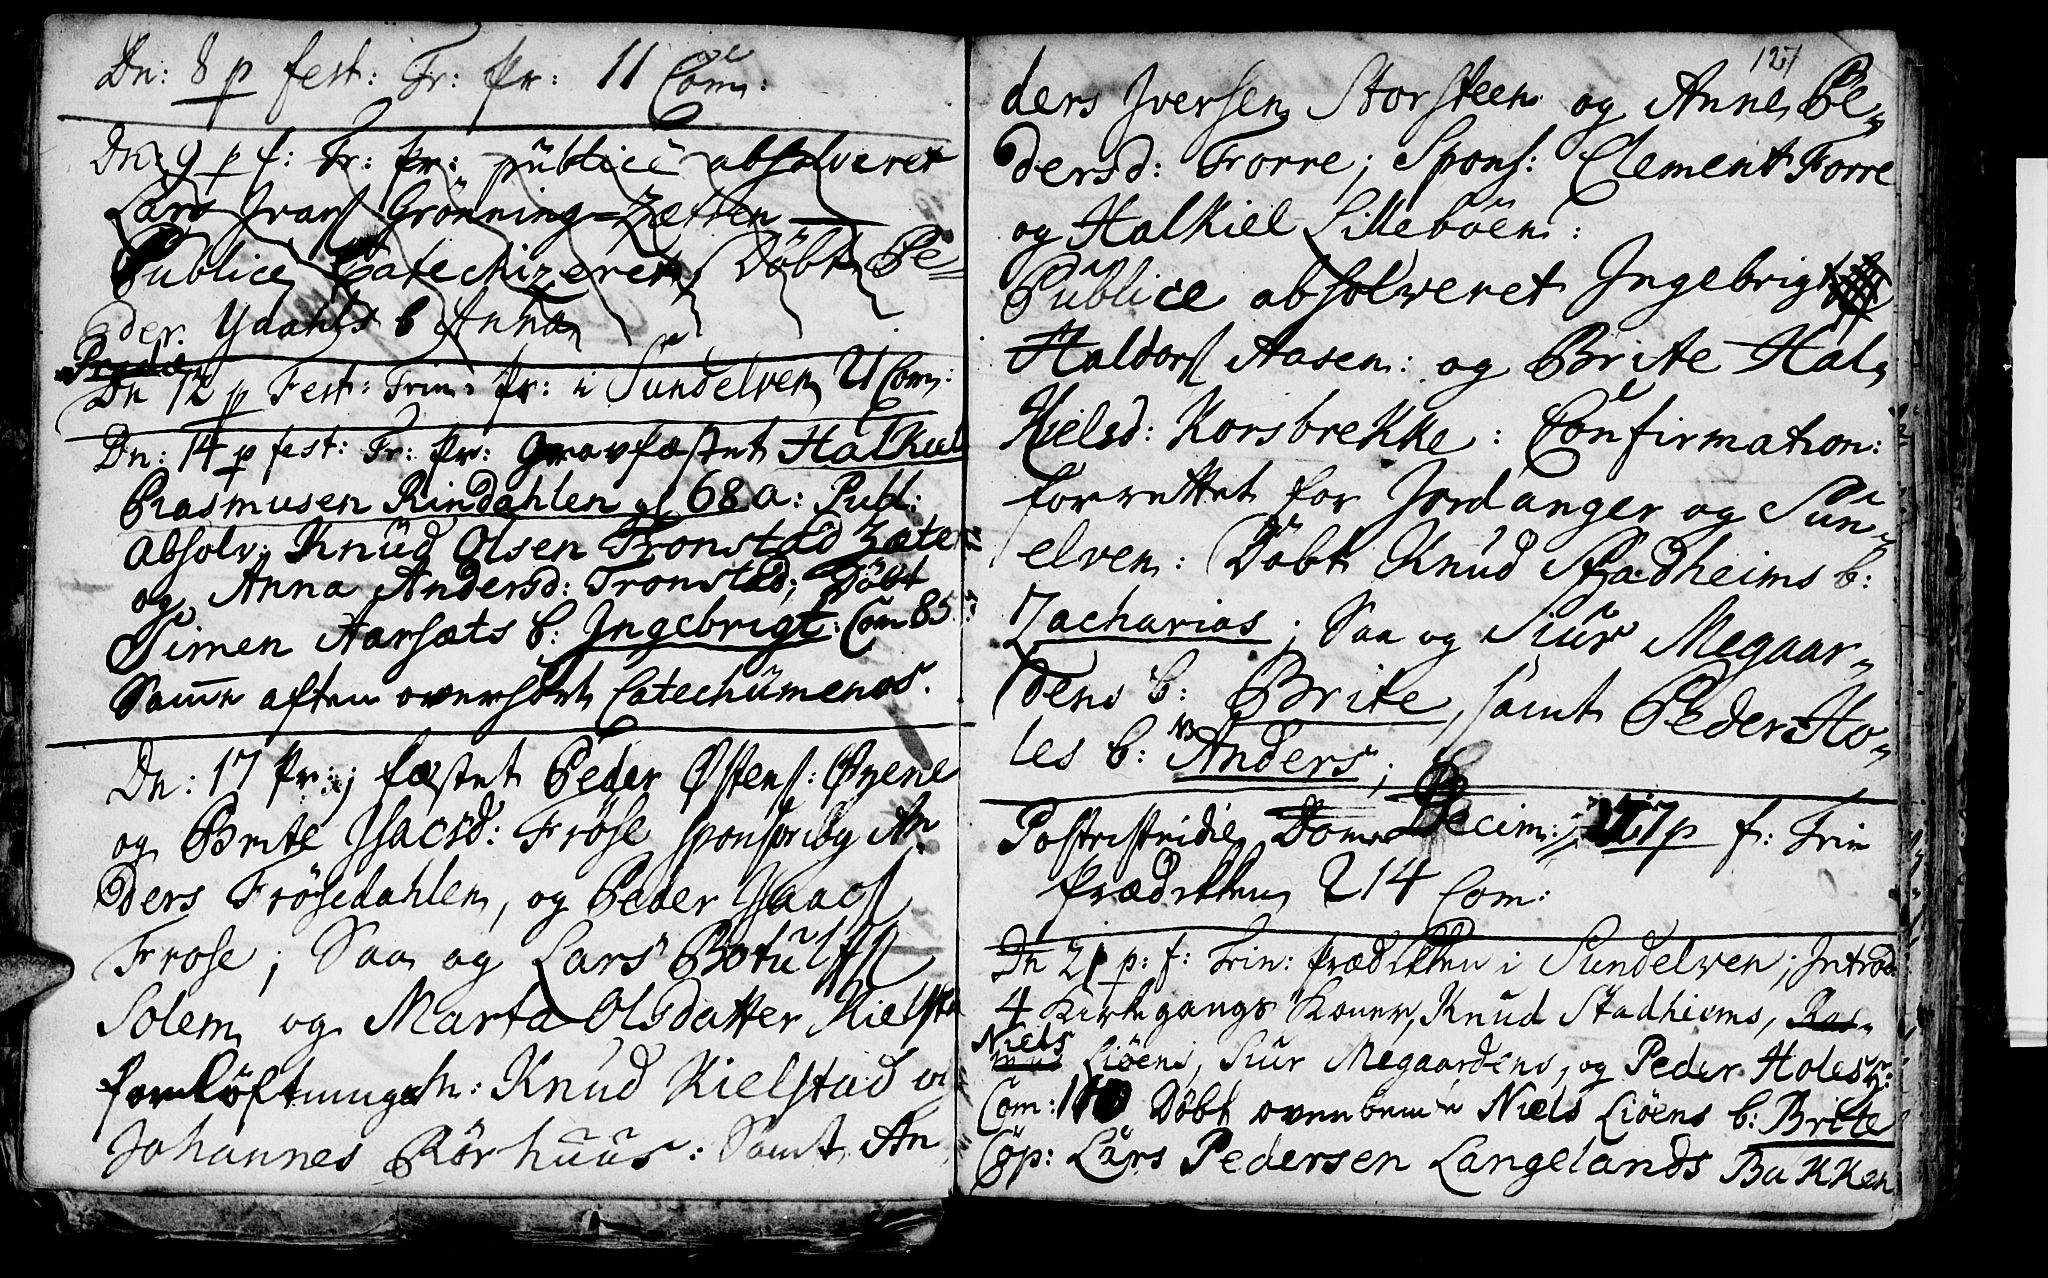 Dn: 8 p fest: Tr: Pr: 11 Com:
Dn: 9 p f: Tr: Pr: publicè absolveret
Lars Ivars Grönning=Zætten
Publice Catechizeret, Döbt Pe=
der Ydahls b Anna
Dn 12 p Fest: Trin: Pr: i Sundelven 21 Com:
Dn: 14 p fest: Tr: Pr: gravfæstet Halkiel
Rasmusen Rindahlen gl 68 a: Publ:
absolv: Knud Olsen Tronstad Zæter
og Anna Andersd: Tronstad; Döbt
Simen Aarsæts b: Ingebrigt: Com 85:
Samme aften overhört Catechumenos.
Dn: 17 Pr:; fæstet Peder Østens: Øyene
og Brite Isacsd: Fröse spons: An
ders Frösedahlen, og Peder Isaacs
Frose; Saa og Lars Botulfs
Solem og Marta Olsdatter Kielsta
forlöftnings m: Knud Kielstad og
Johannes Rörhuus: Samt An
127
ders Iversen Storsteen og Anne Pe=
dersd: Torre; Spons: Clement Torre
og Halkiel Lilleböen:
Publice absolveret Ingebrigt
Haldors Aasen: og Brite Hal=
Kielsd: Korsbrekke: Confirmation:
forrettet for Jordanger og Sun=
elven: Döbt Knud Stadheims b:
Zacharias; Saa og Siur Megaar=
dens b: Brite, samt Peder Ho=
les b: NB Anders;
Postridie Dom Decim: 17 p f: Trin
prædiken 214 Com:
Dn 21 p: f: Trin: prædiken i Sundelven; Introd:
4 Kirkegangs Koner, Knud Stadheims, Ras=
mus Niels Liöens, Siur Megaardens, og Peder Holes
Com: 110 Döbt Niels Liöens b: Brite
Cop: Lars Pedersen Langelands Bakken